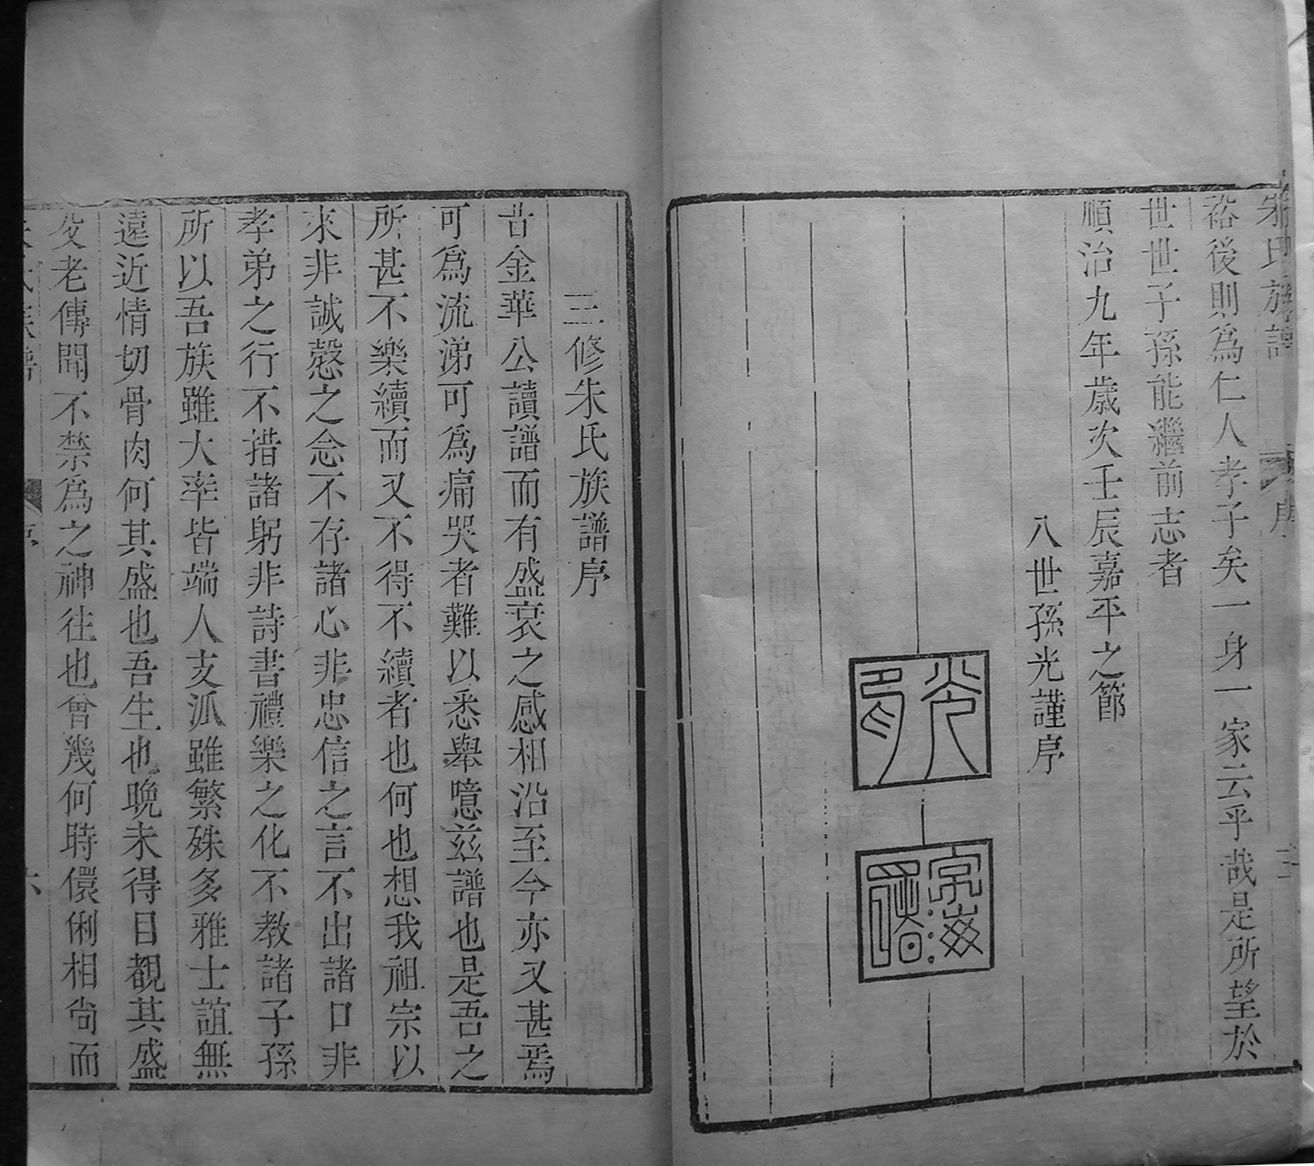 朱氏族譜
序
三
裕後則爲仁人孝子矣一身一家云乎哉是所望於
世世子孫能繼前志者
順治九年歲次壬辰嘉平之節
八世孫光謹序
三修朱氏族譜序
昔金華公讀譜而有盛衰之感相沿至今亦又甚焉
可爲流涕可爲痛哭者難以悉舉噫兹譜也是吾之
所甚不樂續而又不得不續者也何也想我祖宗以
來非誠慤之念不存諸心非忠信之言不出諸口非
孝弟之行不措諸躬非詩書禮樂之化不教諸子孫
所以吾族雖大率皆端人支派雖繁殊多雅士誼無
遠近情切骨肉何其盛也吾生也晚未得目覩其盛
父老傳聞不禁爲之神往也曾幾何時儇俐相尚而
六